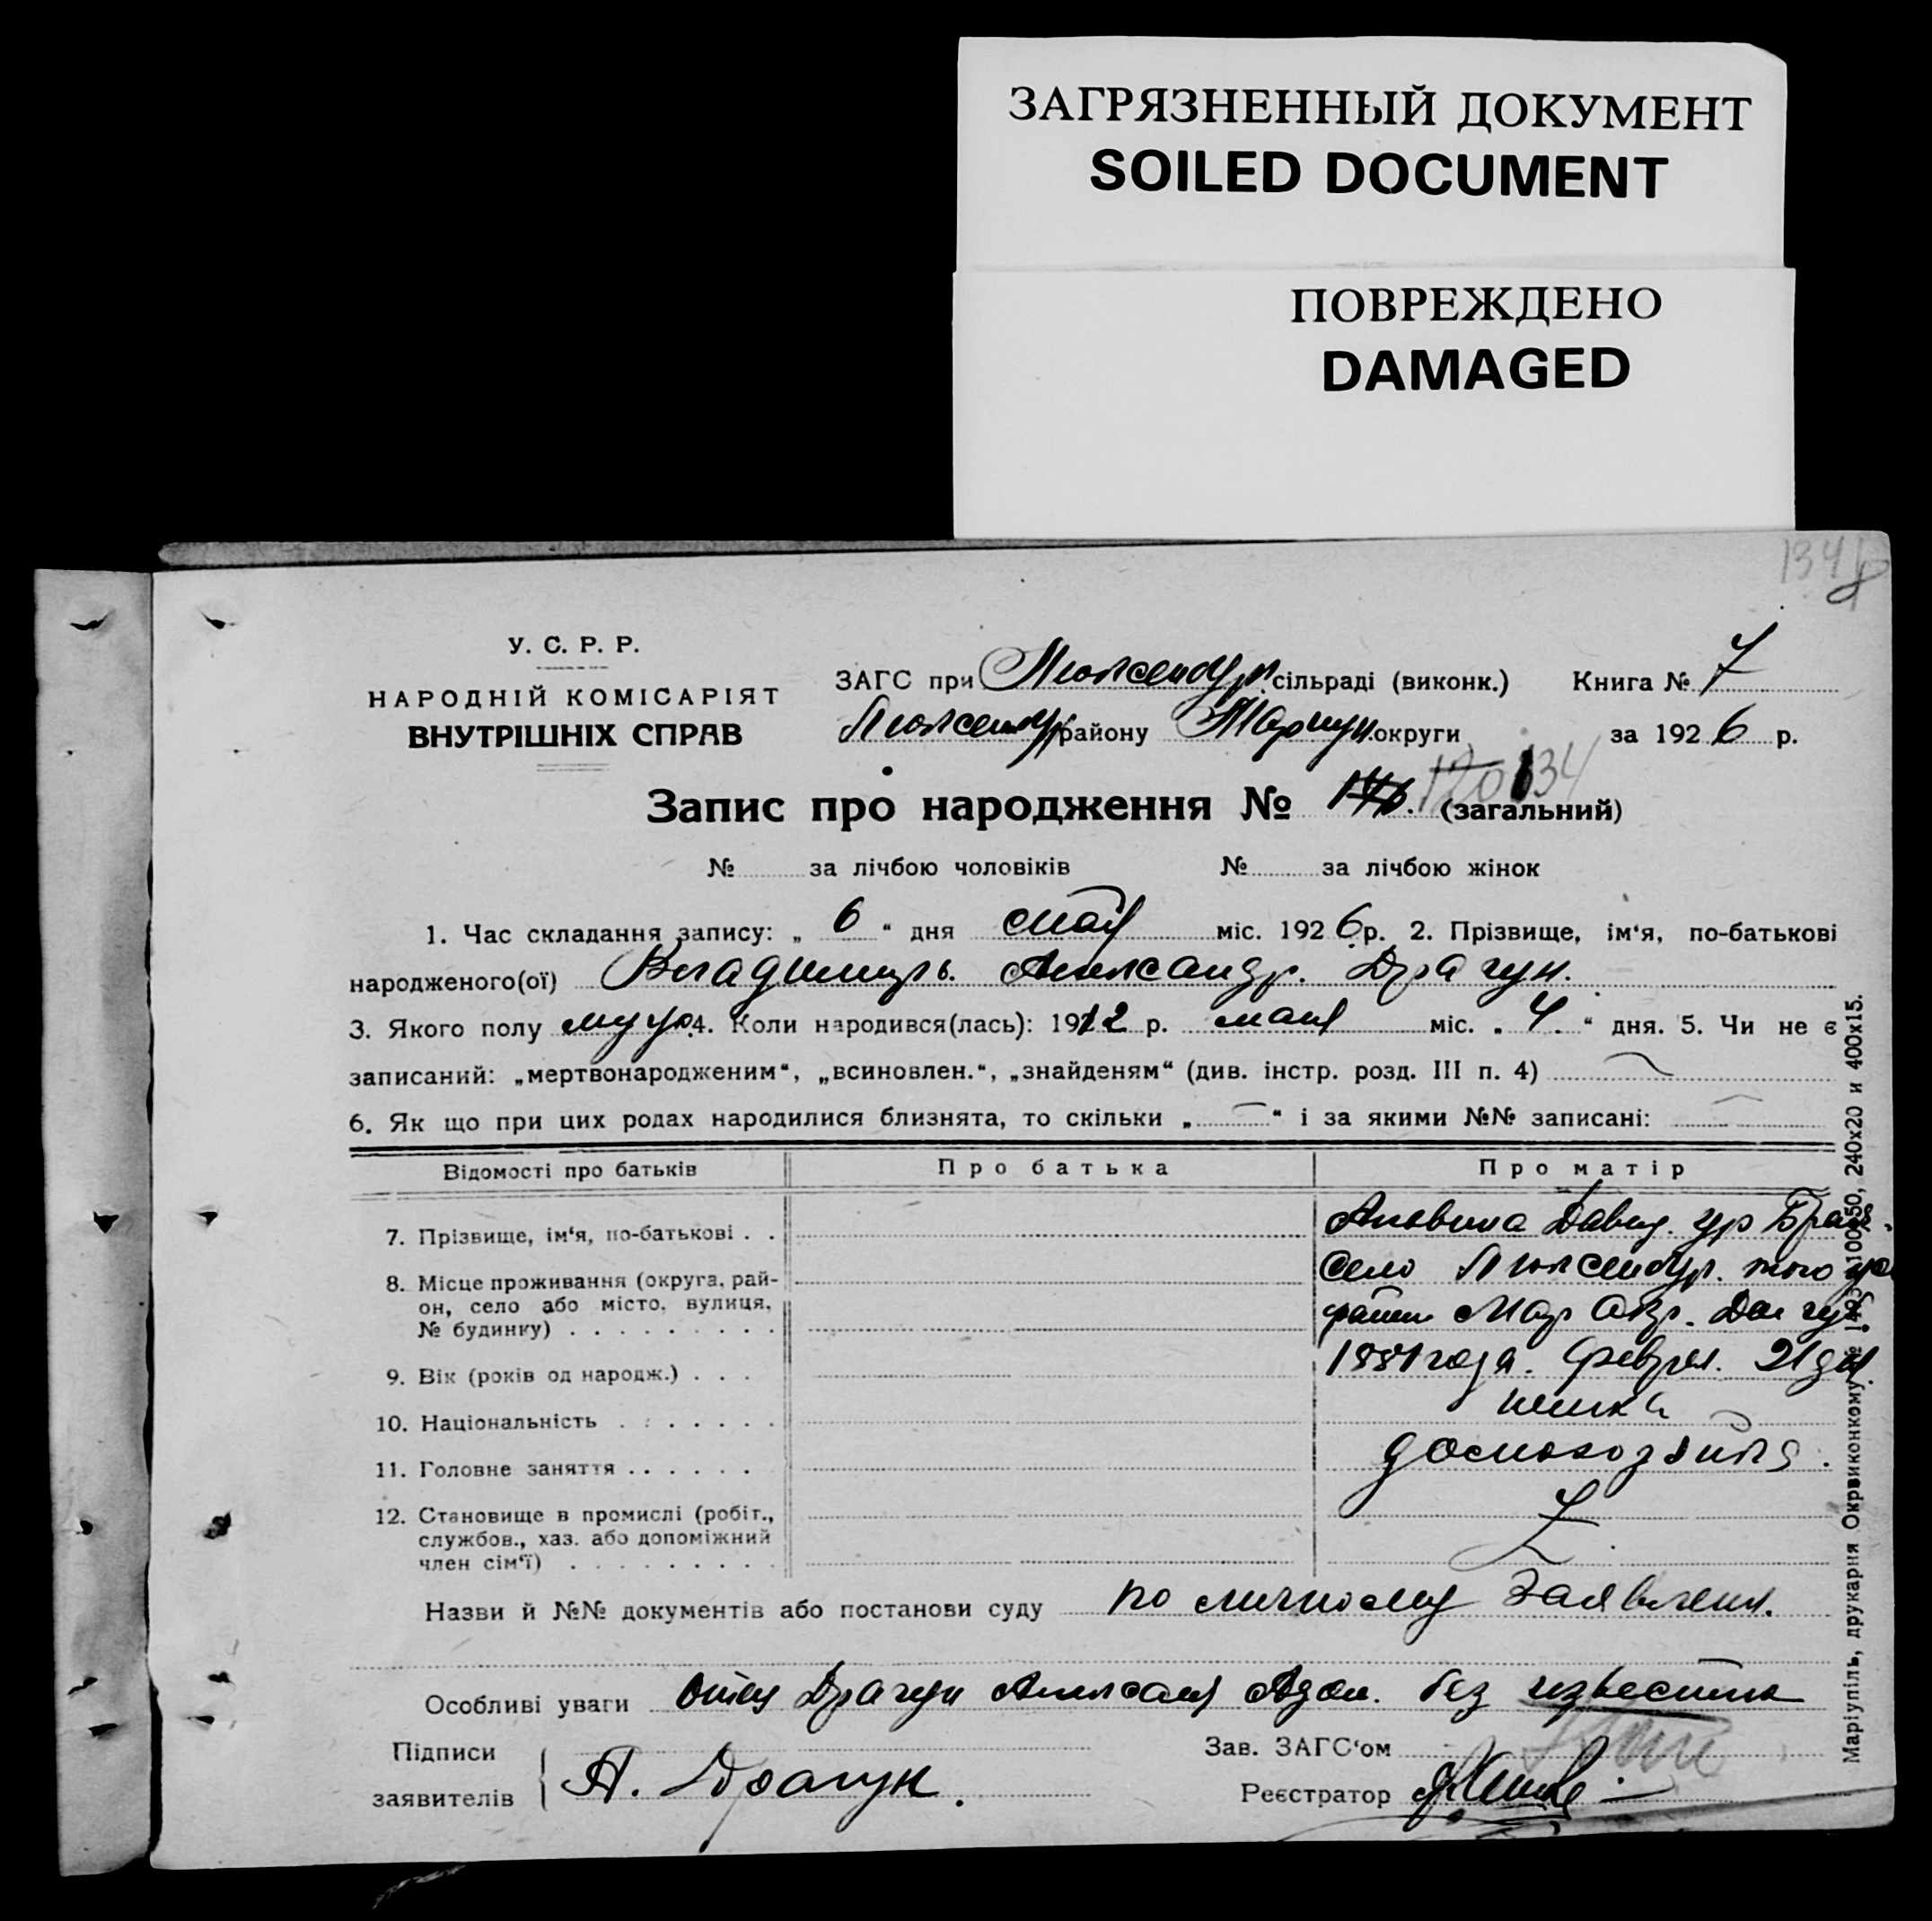 ЗАГРЯЗНЕННЫЙ ДОКУМЕНТ
SOILED DOCUMENT
ПОВРЕЖДЕНО
DAMAGED
134
У. С. Р. Р.
НАРОДНІЙ КОМІСАРІЯТ
ВНУТРІШНІХ СПРАВ
ЗАГС при Люксембур. сільраді (виконк.) Книга № 7
Люксембур району Маріуп. округи за 1926 р.
Запис про народження № 120 134 (загальний)
№ за лічбою чоловіків № за лічбою жінок
1. Час складання запису: „ 6 “ дня мая міс. 1926 р. 2. Прізвище, ім‘я, по-батькові
народженого(ої) Владимиръ. Александр. Драгун.
3. Якого полу муж. 4. Коли народився(лась): 1912 р. мая міс. „ 4. “ дня. 5. Чи не є
записаний: „мертвонародженим“, „всиновлен.“, „знайденям“ (див. інстр. розд. III п. 4)
6. Як що при цих родах народилися близнята, то скільки „ — “ і за якими №№ записані: —
Відомості про батьків Про батька Про матір
7. Прізвище, ім‘я, по-батькові . . Давид. ур
8. Місце проживання (округа, рай-
он, село або місто, вулиця,
№ будинку) . . . . . . . . .
Село Люксембур. того же
района Мар Окр.
9. Вік (років од народж.) . . . 1881 года. Феврал. 21 дня
10. Національність . . . . . . . немка
11. Головне заняття . . . . . . домохозяйка.
12. Становище в промислі (робіт.,
службов., хаз. або допоміжний
член сім‘ї) . . . . . . . . .
Назви й №№ документів або постанови суду по личному заявлени.
Особливі уваги Отец Драгун Адам. без известно
Підписи
заявителів
А. Драгун.
Зав. ЗАГС‘ом
Реєстратор
Маріупіль, друкарня Окрвиконкому № 100х50, 240х20 и 400х15.